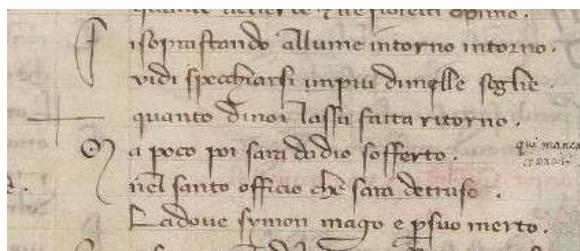 isoprastando allume intorno intorno.
vidi specchiarsi impiu dimille soglie.
quanto dinoi lassu fatta ritorno.
Ma poco poi sara dadio sofferto. qui manca
nel santo officio che sara detruso
Ladove symon mago e psuo merto.